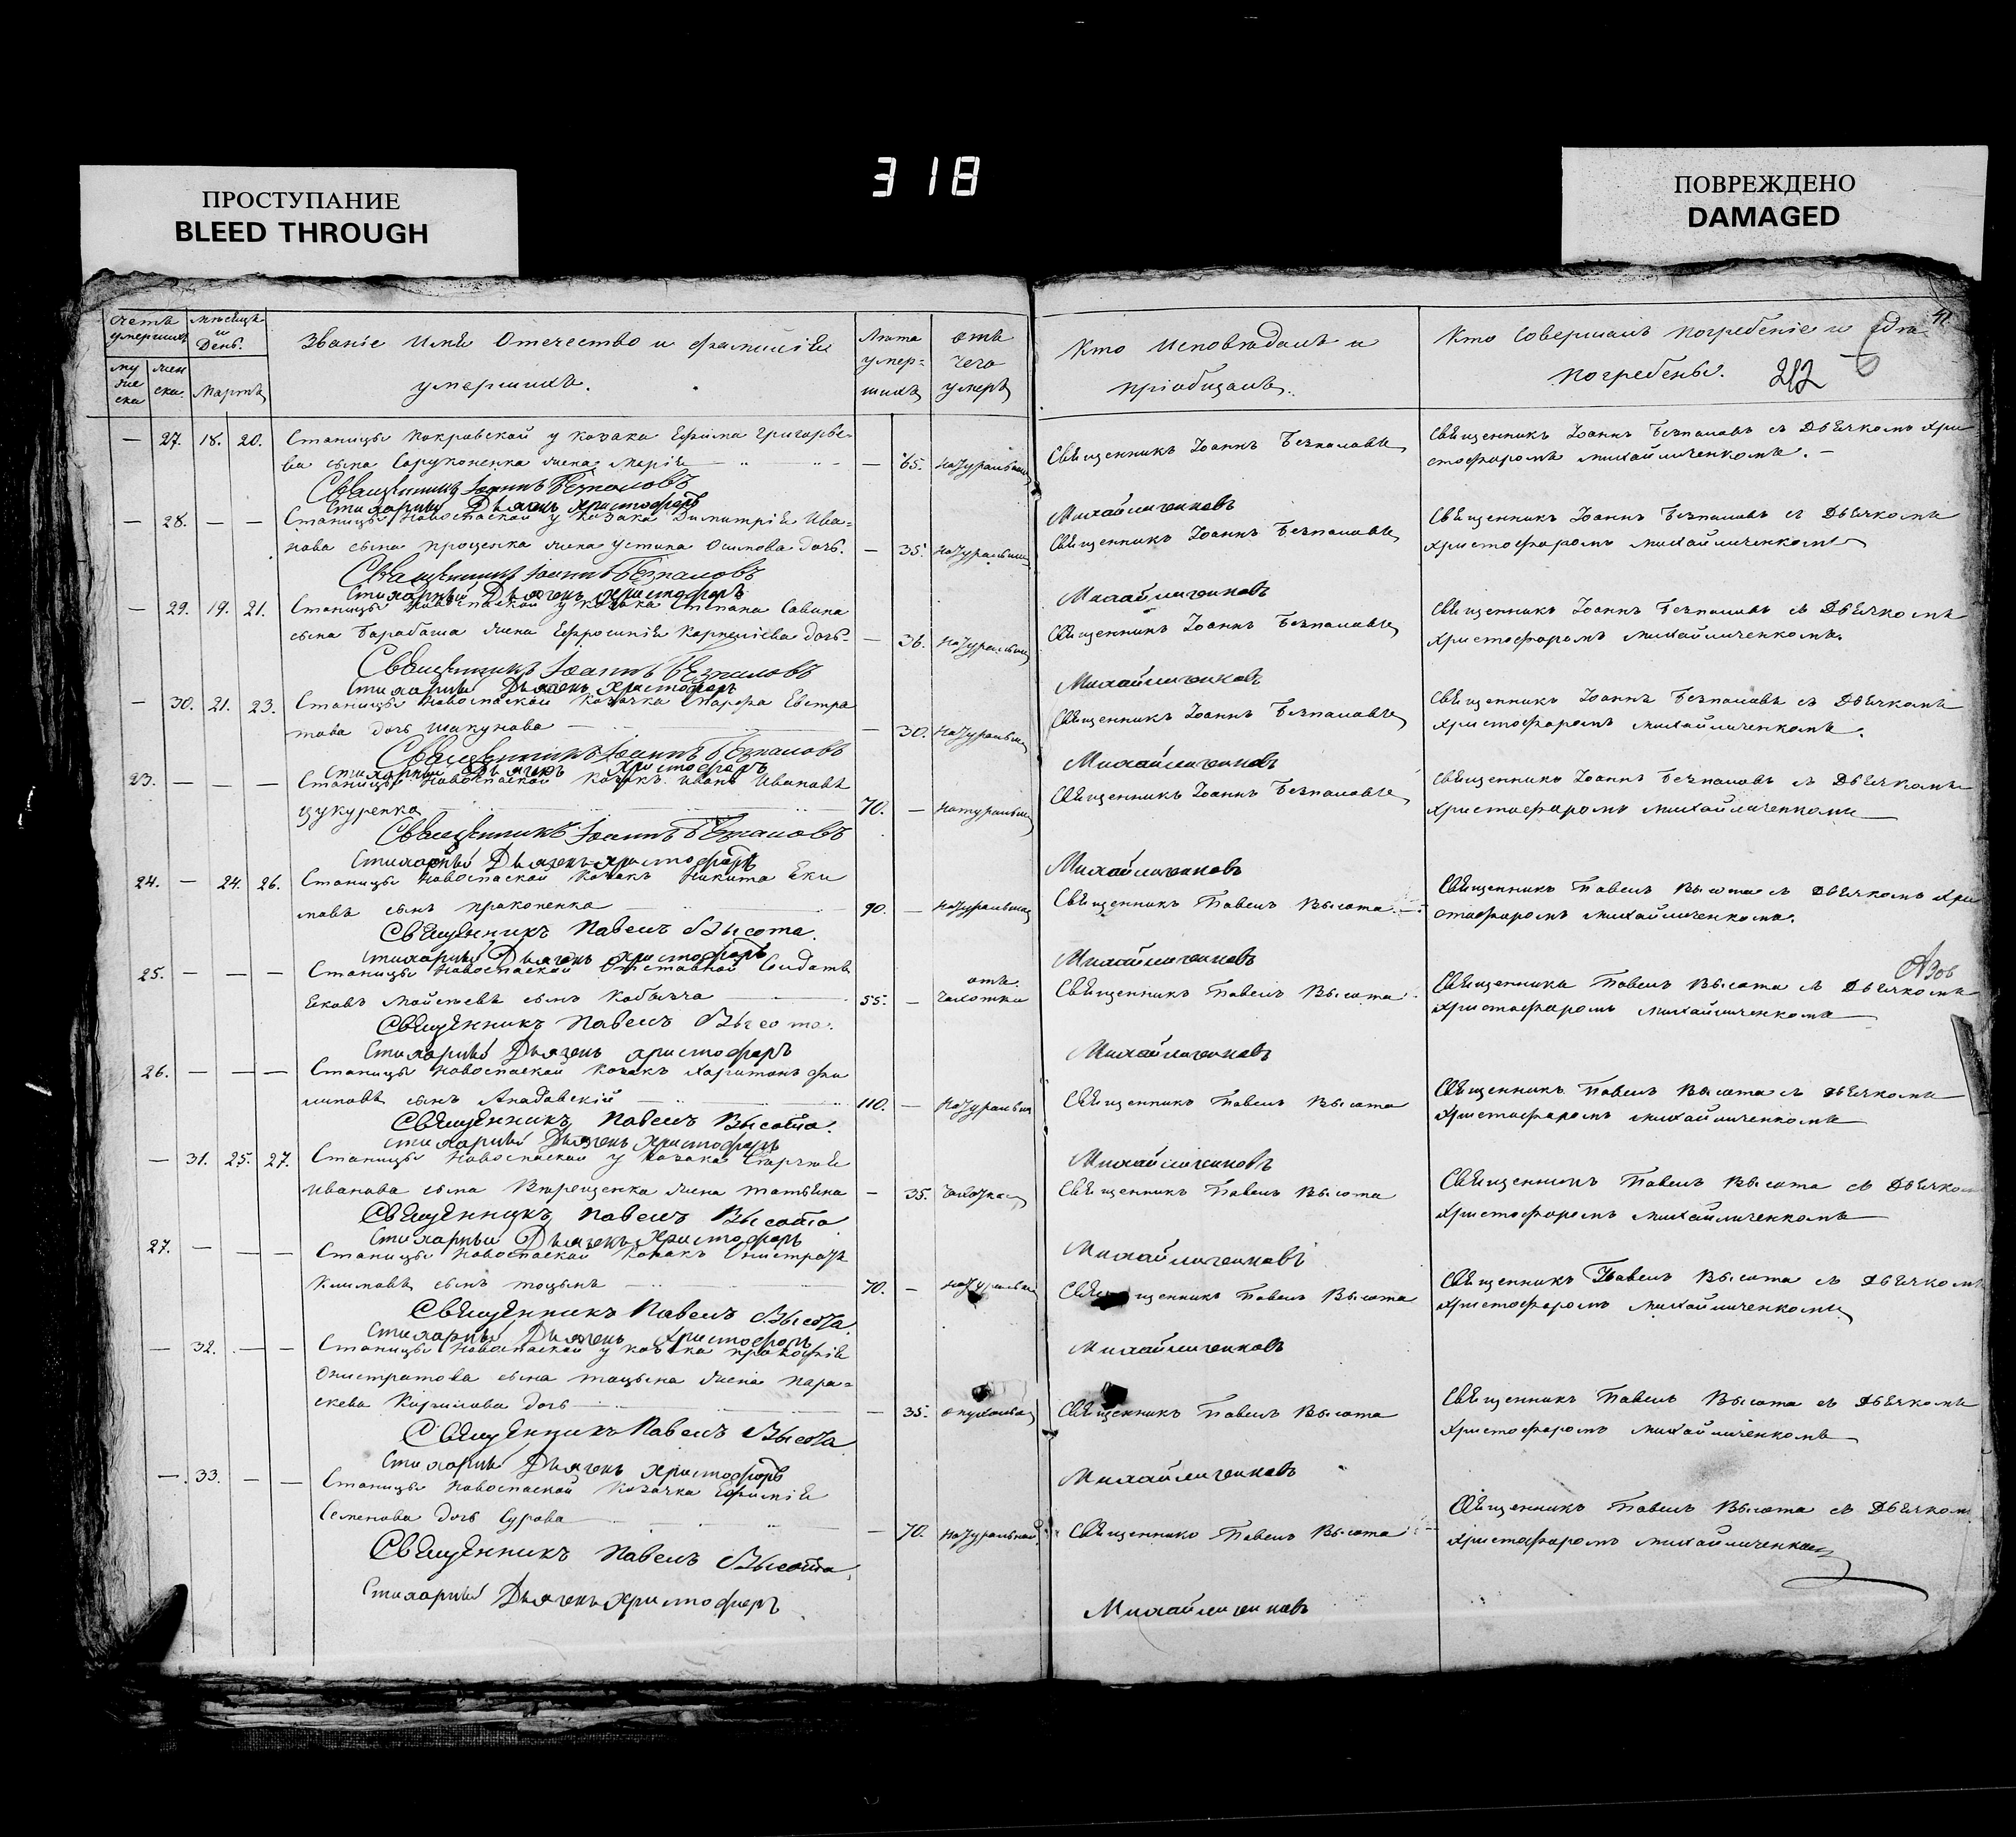 318
ПРОСТУПАНИЕ
BLEED THROUGH
ПОВРЕЖДЕНО
DAMAGED
Счетъ умершихъ
Мѣсяцъ и День.
Званіе Имя Отечество и Фамилія умершихъ.
Лѣта умер-шихъ
отъ чего умеръ
Кто Исповѣдалъ и пріобщалъ.
Кто Совершалъ погребеніе и гдѣ погребены.
41.
212
муже ска
жен ска.
Мартъ
— 27. 18. 20. Станицы Покровской у козака Ефима Григорье-
ва сына жена Марія — 65. натуральной Священникъ Іоаннъ Безпаловъ Священникъ Іоаннъ Безпаловъ съ Дьячкомъ Хри
стофоромъ Михайличенкомъ. —
Священникъ Іоаннъ Безпаловъ
Стихарный Дьячекъ Христофоръ Михайличенковъ
— 28. — — Станицы Новоспаской у козака Димитрія Ива=
нова сына Проценка жена Устина Осипова дочь. — 35. натуральной Священникъ Іоаннъ Безпаловъ Священникъ Іоаннъ Безпаловъ съ Дьячкомъ
Христофоромъ Михайличенкомъ
Священникъ Іоаннъ Безпаловъ
Стихарный Дьячекъ Христофоръ Михайличенковъ
— 29. 19. 21. Станицы Новоспаской у козака Степана Савина
сына Барабаша жена Ефросинія Корнеліева дочь — 36. натуральной Священникъ Іоаннъ Безпаловъ Священникъ Іоаннъ Безпаловъ съ Дьячкомъ
Христофоромъ Михайличенкомъ.
Священникъ Іоаннъ Безпаловъ
Стихарный Дьячекъ Христофоръ Михайличенковъ
— 30. 21. 23. Станицы Новоспаской Козачка Евстра
това дочь Шакунова — 30. натуральной Священникъ Іоаннъ Безпаловъ Священникъ Іоаннъ Безпаловъ съ Дьячкомъ
Христофоромъ Михайличенкомъ.
Священникъ Іоаннъ Безпаловъ
Стихарный Дьячекъ Христофоръ Михайличенковъ
23. — — — Станицы Новоспаской козакъ Иванъ Ивановъ
Цукуренко 70. — натуральной Священникъ Іоаннъ Безпаловъ Священникъ Іоаннъ Безпаловъ съ Дьячкомъ
Христофоромъ Михайличенкомъ
Священникъ Іоаннъ Безпаловъ
Стихарный Дьячекъ Христофоръ Михайличенковъ
24. — 24. 26. Станицы Новоспаской Козакъ Никита Еки
мовъ сынъ Прокопенко 90. — натуральной Священникъ Павелъ Высота Священникъ Павелъ Высота съ Дьячкомъ Хри
стофоромъ Михайличенкомъ.
Священникъ Павелъ Высота.
Стихарный Дьячекъ Христофоръ Михайличенковъ
Азов
25. — — — Станицы Новоспаской Отставной Солдатъ
Яковъ Мойсѣевъ сынъ Кобызча 55. — отъ чахотки Священникъ Павелъ Высота Священникъ Павелъ Высота съ Дьячкомъ
Христофоромъ Михайличенкомъ
Священникъ Павелъ Высота.
Стихарный Дьячекъ Христофоръ Михайличенковъ
26. — — — Станицы Новоспаской Козакъ Харитонъ Фи
липовъ сынъ Ападовскій 110. — натуральной Священникъ Павелъ Высота Священникъ Павелъ Высота съ Дьячкомъ
Христофоромъ Михайличенкомъ
Священникъ Павелъ Высота.
Стихарный Дьячекъ Христофоръ Михайличенковъ
— 31. 25. 27. Станицы Новоспаской у козака Сергѣя
Иванова сына жена Татьяна — 35. Священникъ Павелъ Высота Священникъ Павелъ Высота съ Дьячком
Христофоромъ Михайличенкомъ
Священникъ Павелъ Высота
Стихарный Дьячекъ Христофоръ Михайличенковъ
27. — — — Станицы Новоспаской Козакъ Онистратъ
Климовъ сынъ Тоцынъ 70. — натуральной Священникъ Павелъ Высота Священникъ Павелъ Высота съ Дьячкомъ
Христофоромъ Михайличенкомъ
Священникъ Павелъ Высота.
Стихарный Дьячекъ Христофоръ Михайличенковъ
— 32. — — Станицы Новоспаской у козака Прокофія
Онистратова сына Тоцына жена Пара=
скева Кирилова дочь — 35. Священникъ Павелъ Высота Священникъ Павелъ Высота съ Дьячкомъ
Христофоромъ Михайличенкомъ
Священникъ Павелъ Высота
Стихарный Дьячекъ Христофоръ Михайличенковъ
— 33. — — Станицы Новоспаской Козачка Ефимія
Семенова дочь Сурова — 70. натуральной Священникъ Павелъ Высота Священникъ Павелъ Высота съ Дьячком
Христофоромъ Михайличенкомъ
Священникъ Павелъ Высота.
Стихарный Дьячекъ Христофоръ Михайличенковъ